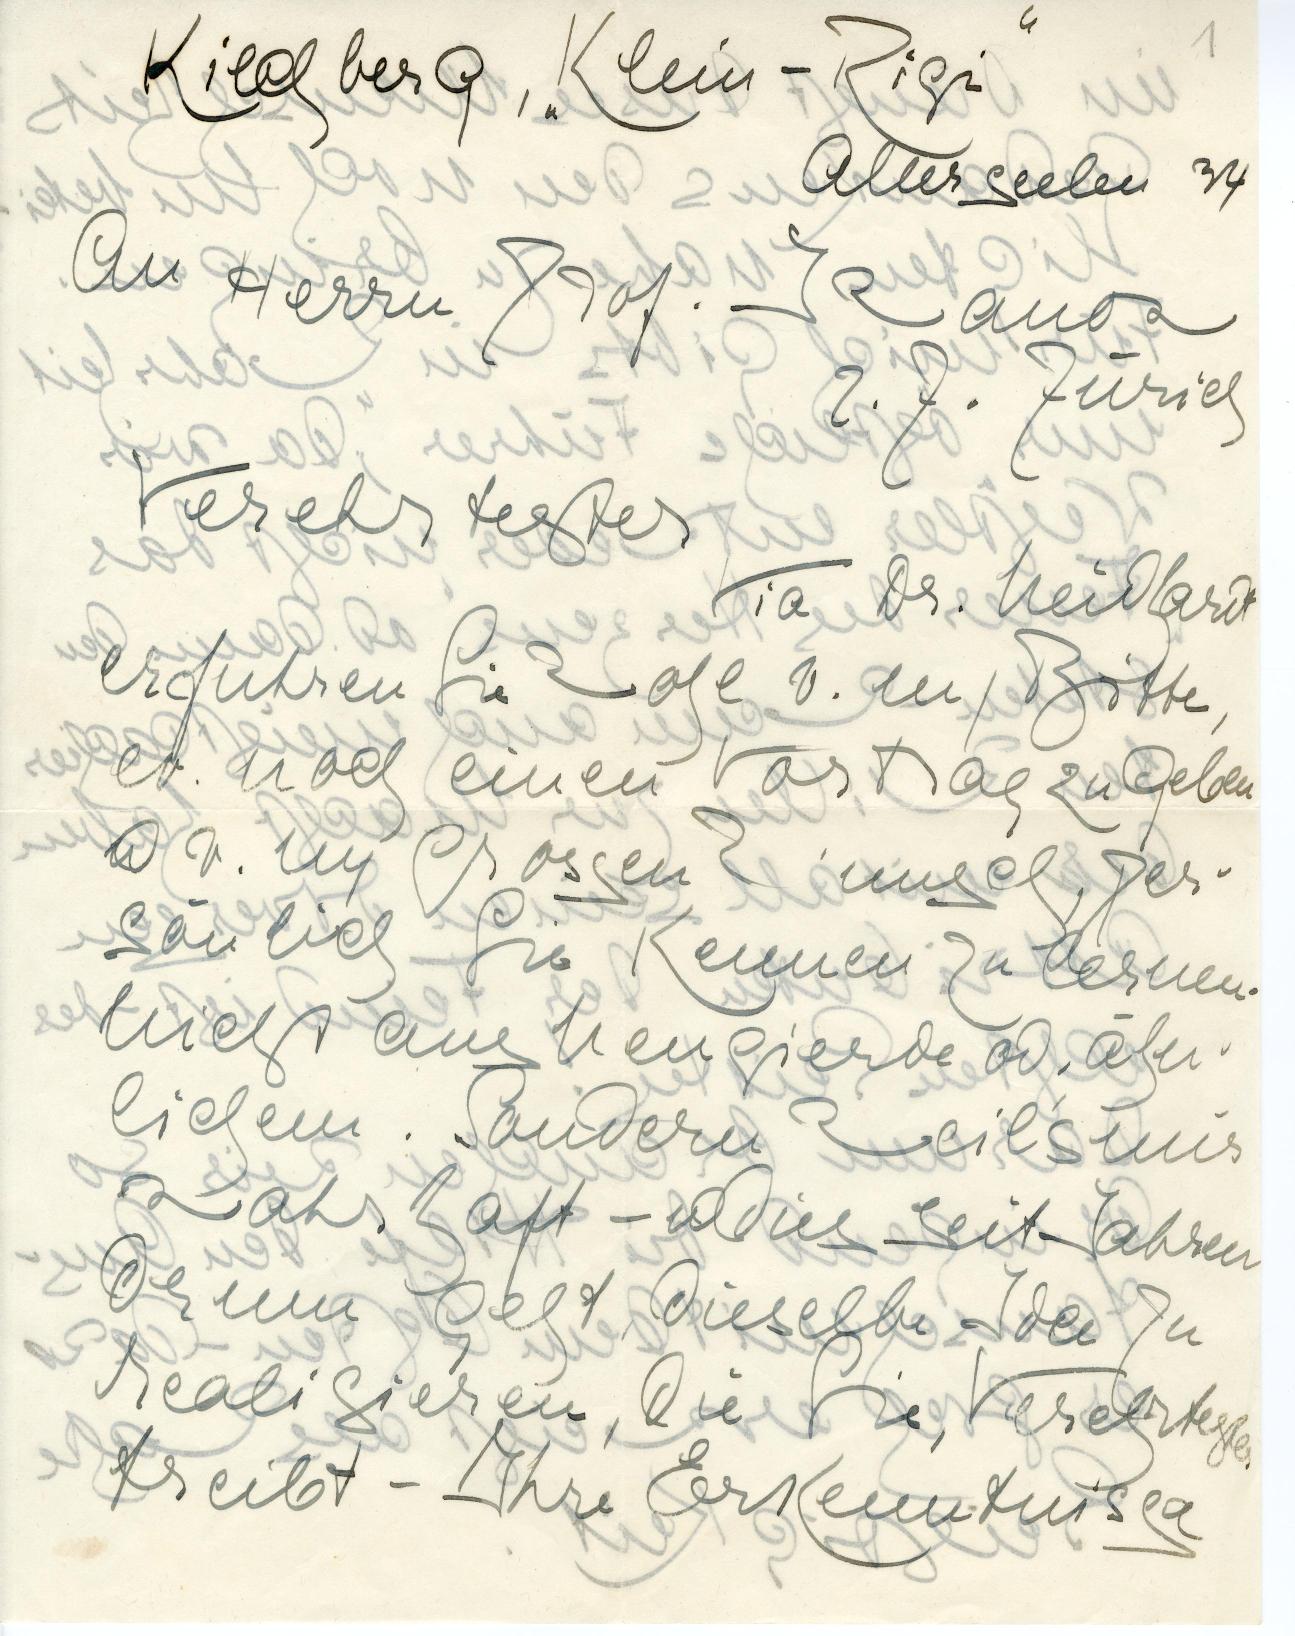 1
Kilchberg, „Klein-Rigi"
Allerseelen 34
An Herrn Prof.
z. Z. Zürich
Verehrtester
Via Dr. Neidhardt
erfuhren Sie wohl v. m. Bitte,
ev. noch einen Vortrag zu geben
u v. my grossen Wunsch, per-
sönlich Sie kennen zu lernen.
Nicht aus Neugierde od. ähn-
lichem. Sondern weil's mir
wahrhaft - u dies seit Jahren
drum geht, dieselbe Idee zu
realisieren, die Sie, Verehrtester
treibt - Ihre Erkenntnisse